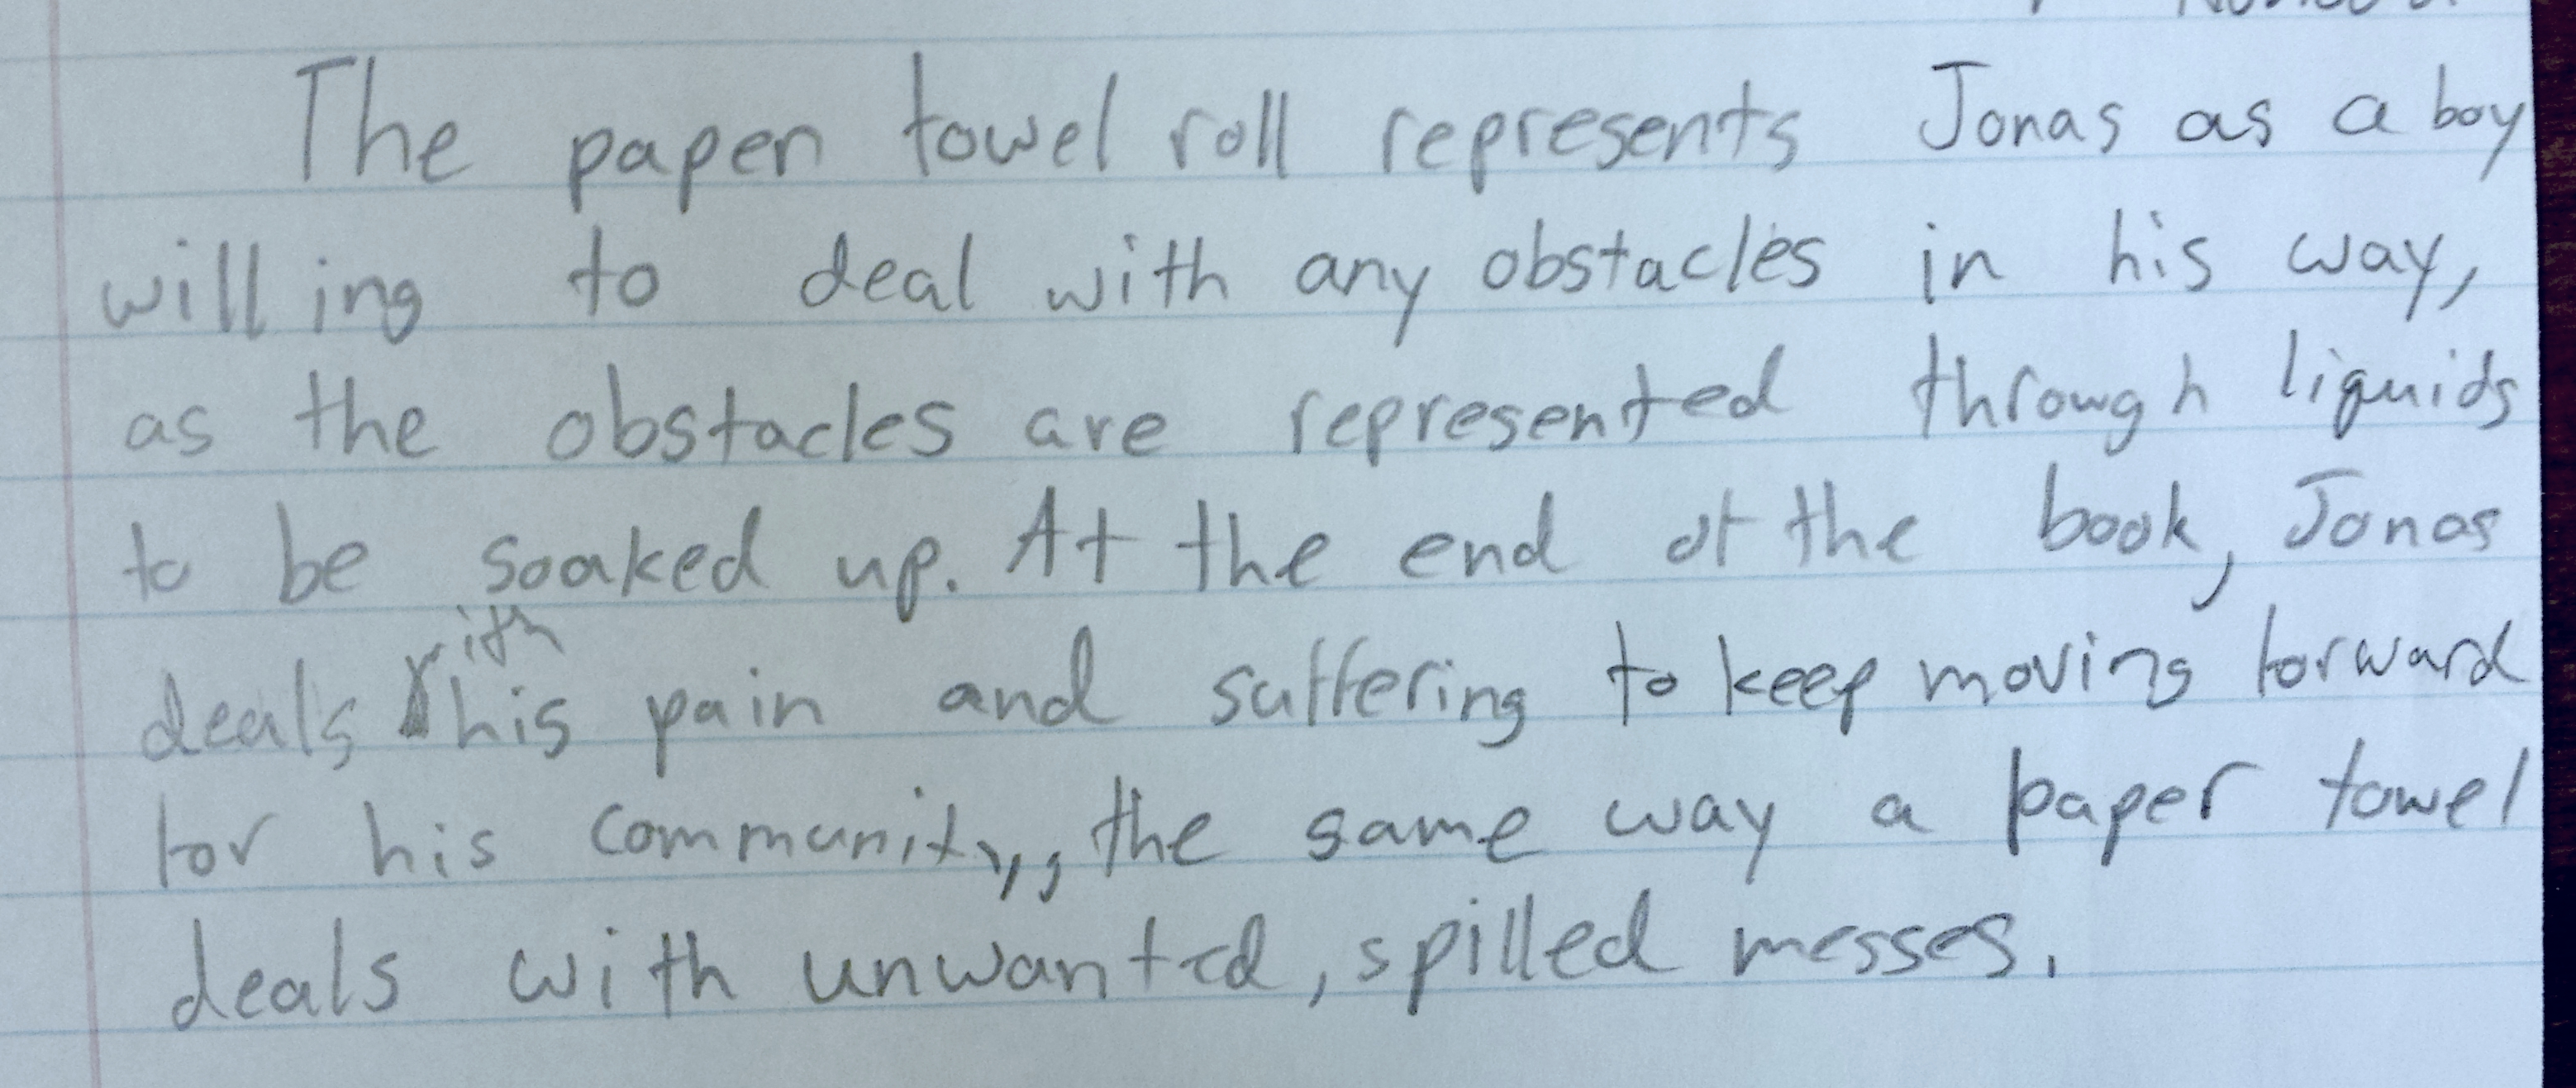 The paper towel roll represents Jonas as a boy
willing to deal with any obstacles in his way,
as the obstacles are represented through liquids
to be soaked up. At the end of the book, Jonas
deals with his pain and suffering to keep moving forward
for his community, the same way a paper towel
deals with unwanted, spilled messes.